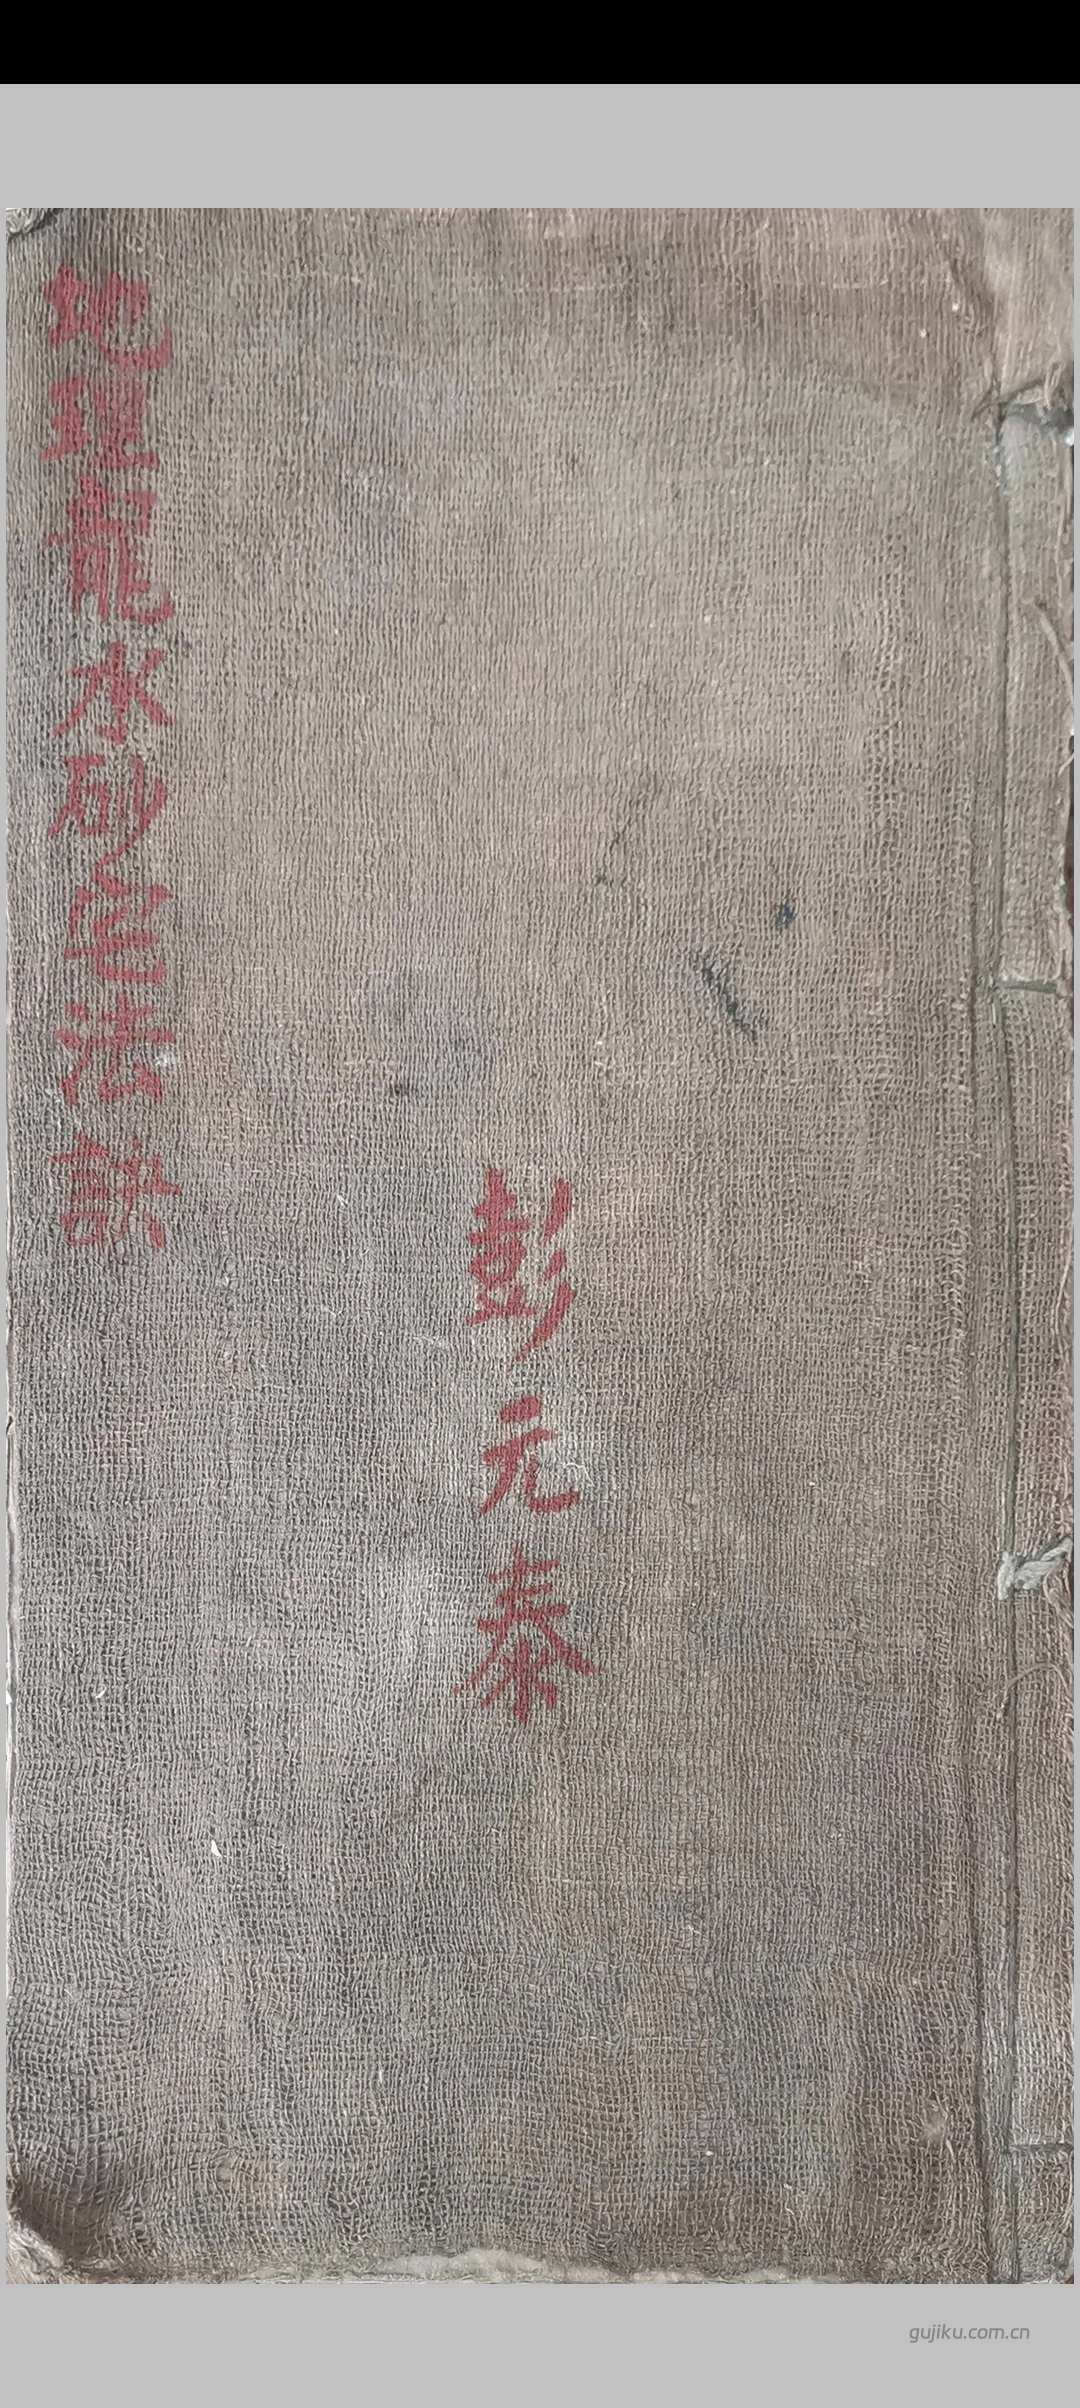 地理龍水砂宅法訣
彭元泰
gujiku.com.cn